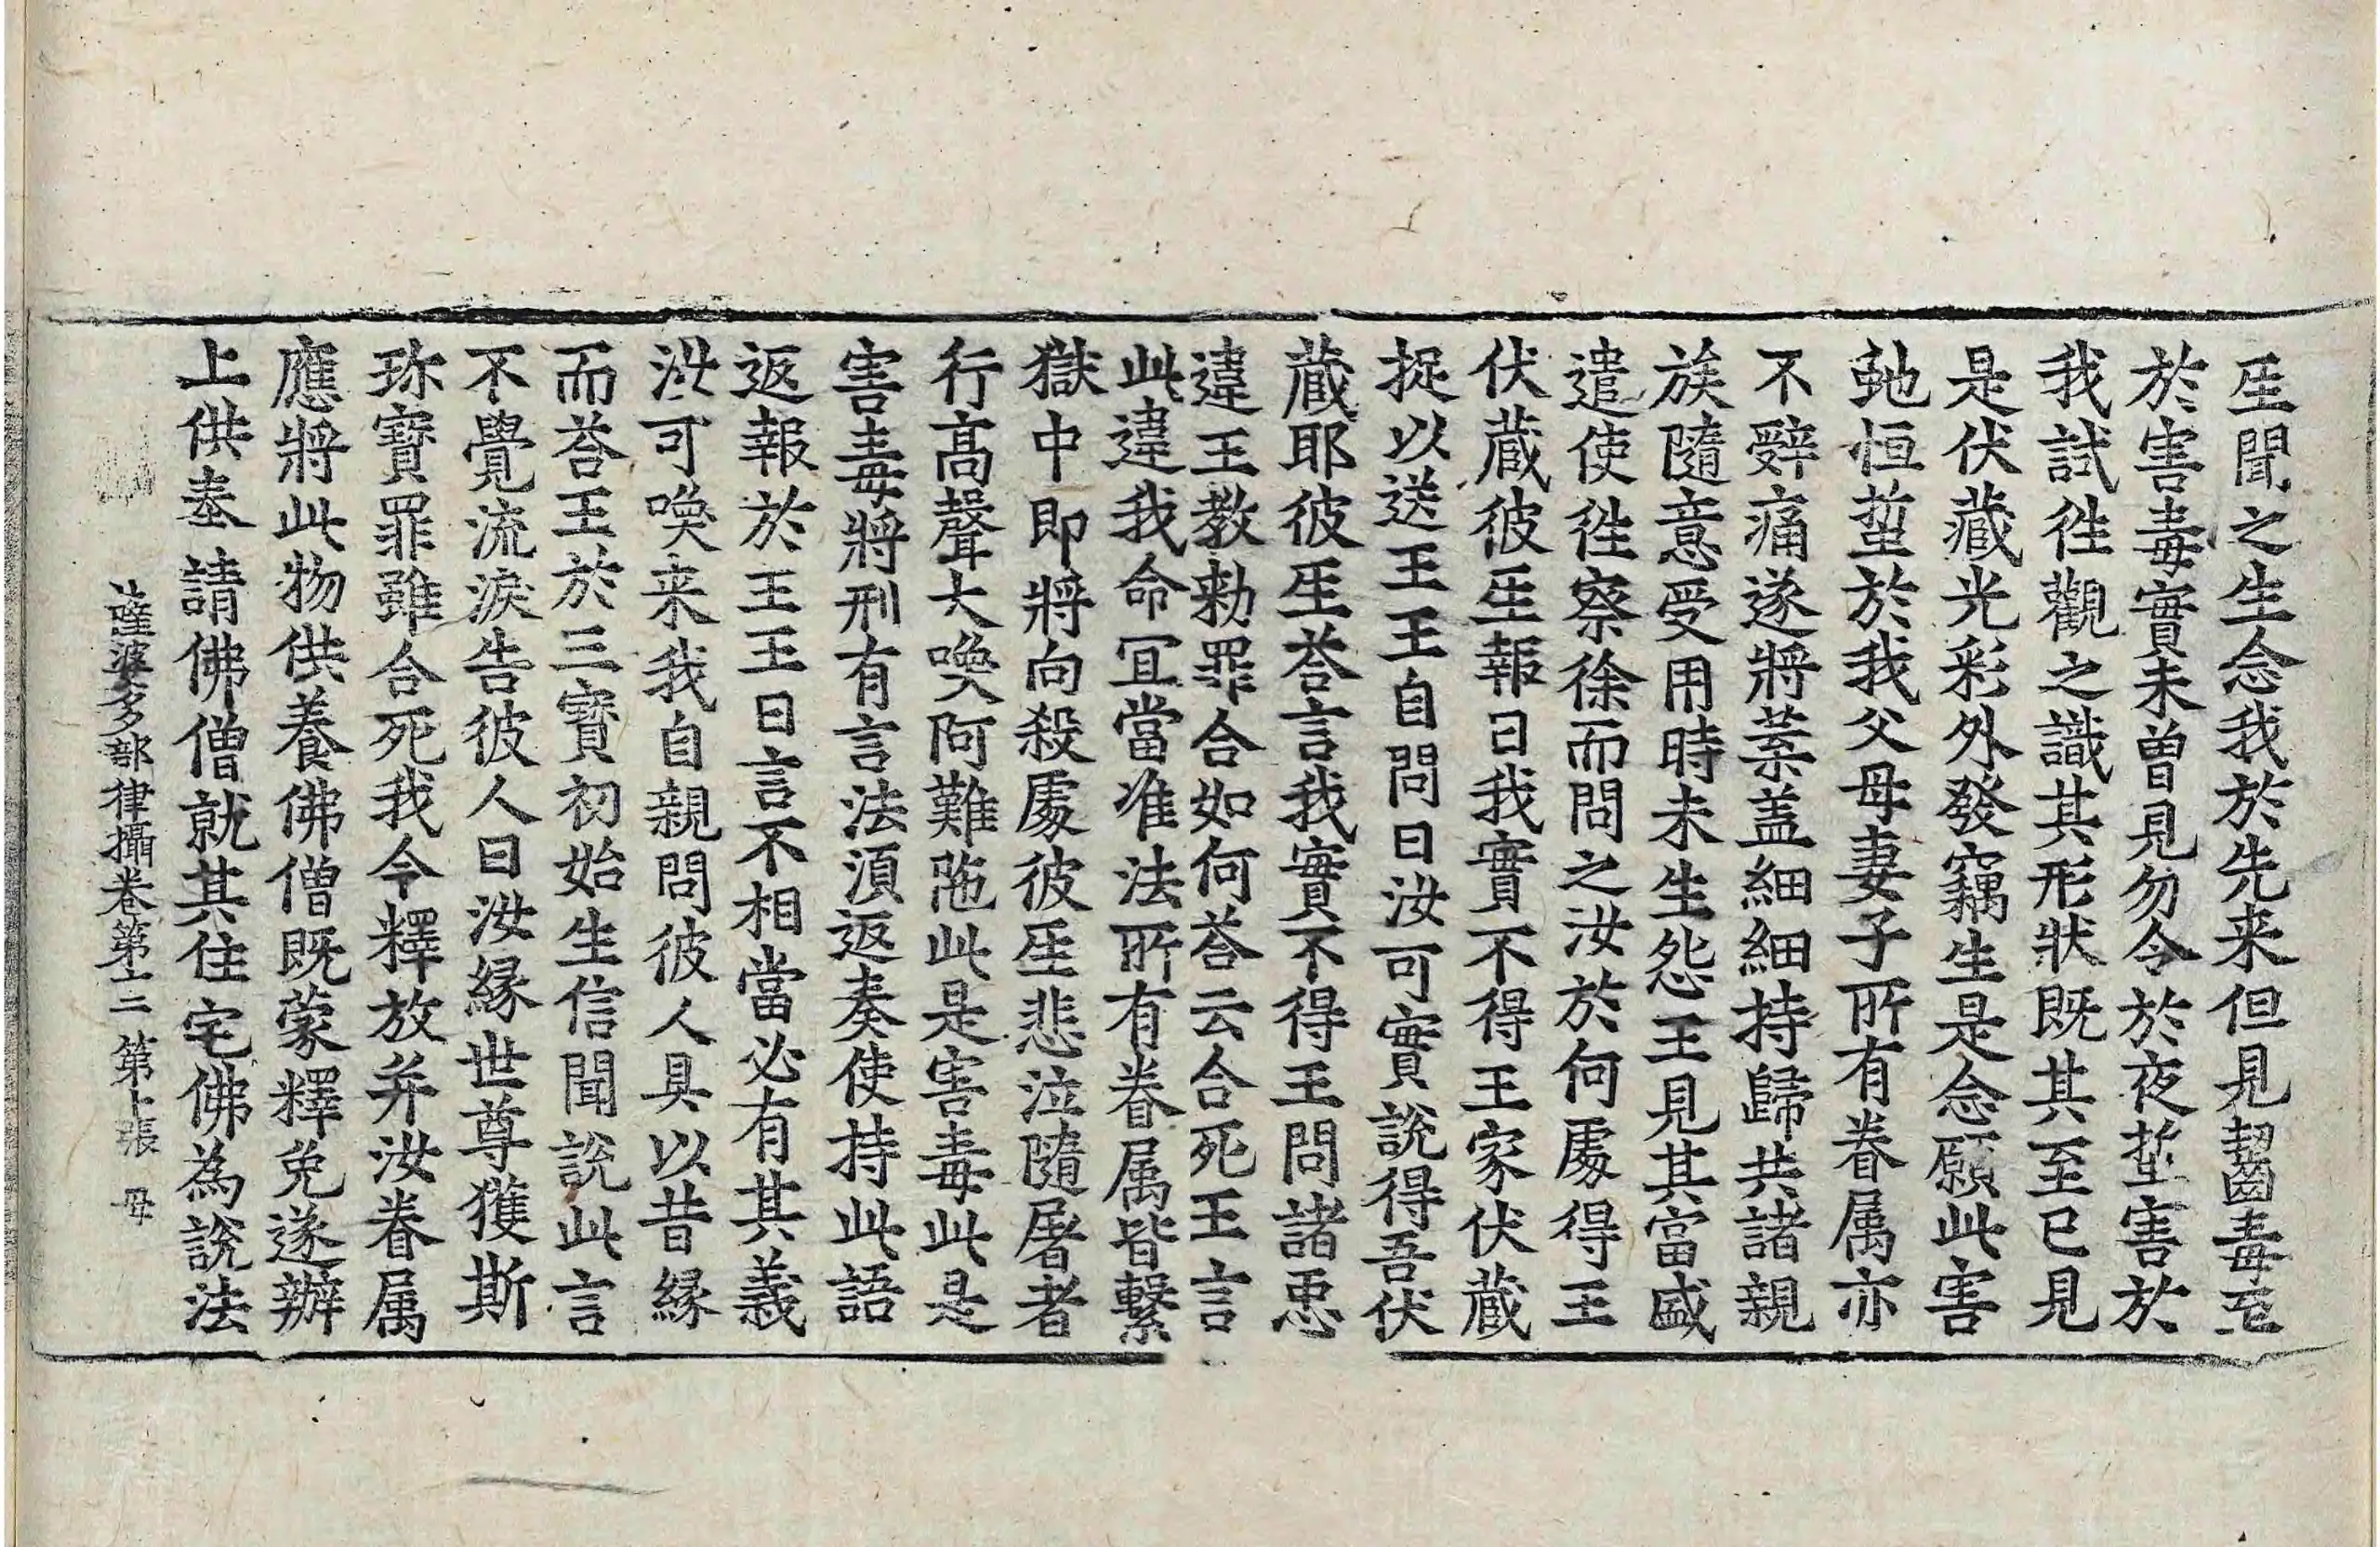 𤯔聞之生念我於先来但見齧毒至
於害毒實未曾見勿令於夜蜇害於
我試徃觀之識其形狀既其至已見
是伏藏光彩外發竊生是念願此害
虵恒蜇於我父母妻子所有眷属亦
不辭痛遂將葉盖細細持歸共諸親
族隨意受用時未生怨王見其富盛
遣使徃察徐而問之汝於何處得王
伏蔵彼𤯔報曰我實不得王家伏蔵
捉以送王王自問曰汝可實說得吾伏
蔵耶彼𤯔荅言我實不得王問諸惡
違王教勑罪合如何荅云合死王言
此違我命冝當准法所有眷属皆繫
獄中即將向殺處彼𤯔悲泣隨屠者
行高聲大喚阿難陁此是害毒此是
害毒將刑有言法湏返奏使持此語
返報於王王曰言不相當必有其義
汝可喚来我自親問彼人具以昔縁
而荅王於三寶初始生信聞說此言
不覺流淚告彼人曰汝縁世尊獲斯
珎寶罪雖合死我今釋放并汝眷属
應將此物供養佛僧既蒙釋免遂辦
上供奉請佛僧就其住宅佛為說法
薩婆多部律攝卷第十二 第十張 母